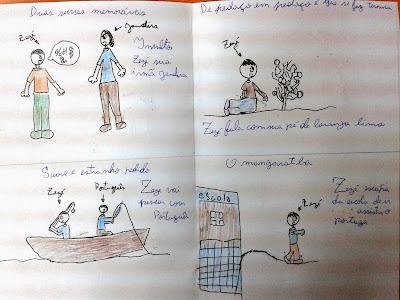 Duas surras memoráveis
Zezé
Jandira
Insulto
Zezé sua
irmã Jandira
De pedaço em pedaço é que se faz ternura
Zezé
Zezé fala com seu pé de laranja lima
Suave e estranho pedido
Zezé
Português
Zezé vai
pescar com
Português
O mangaratiba
escola
Zezé
Zezé escapa
da escola
portuga